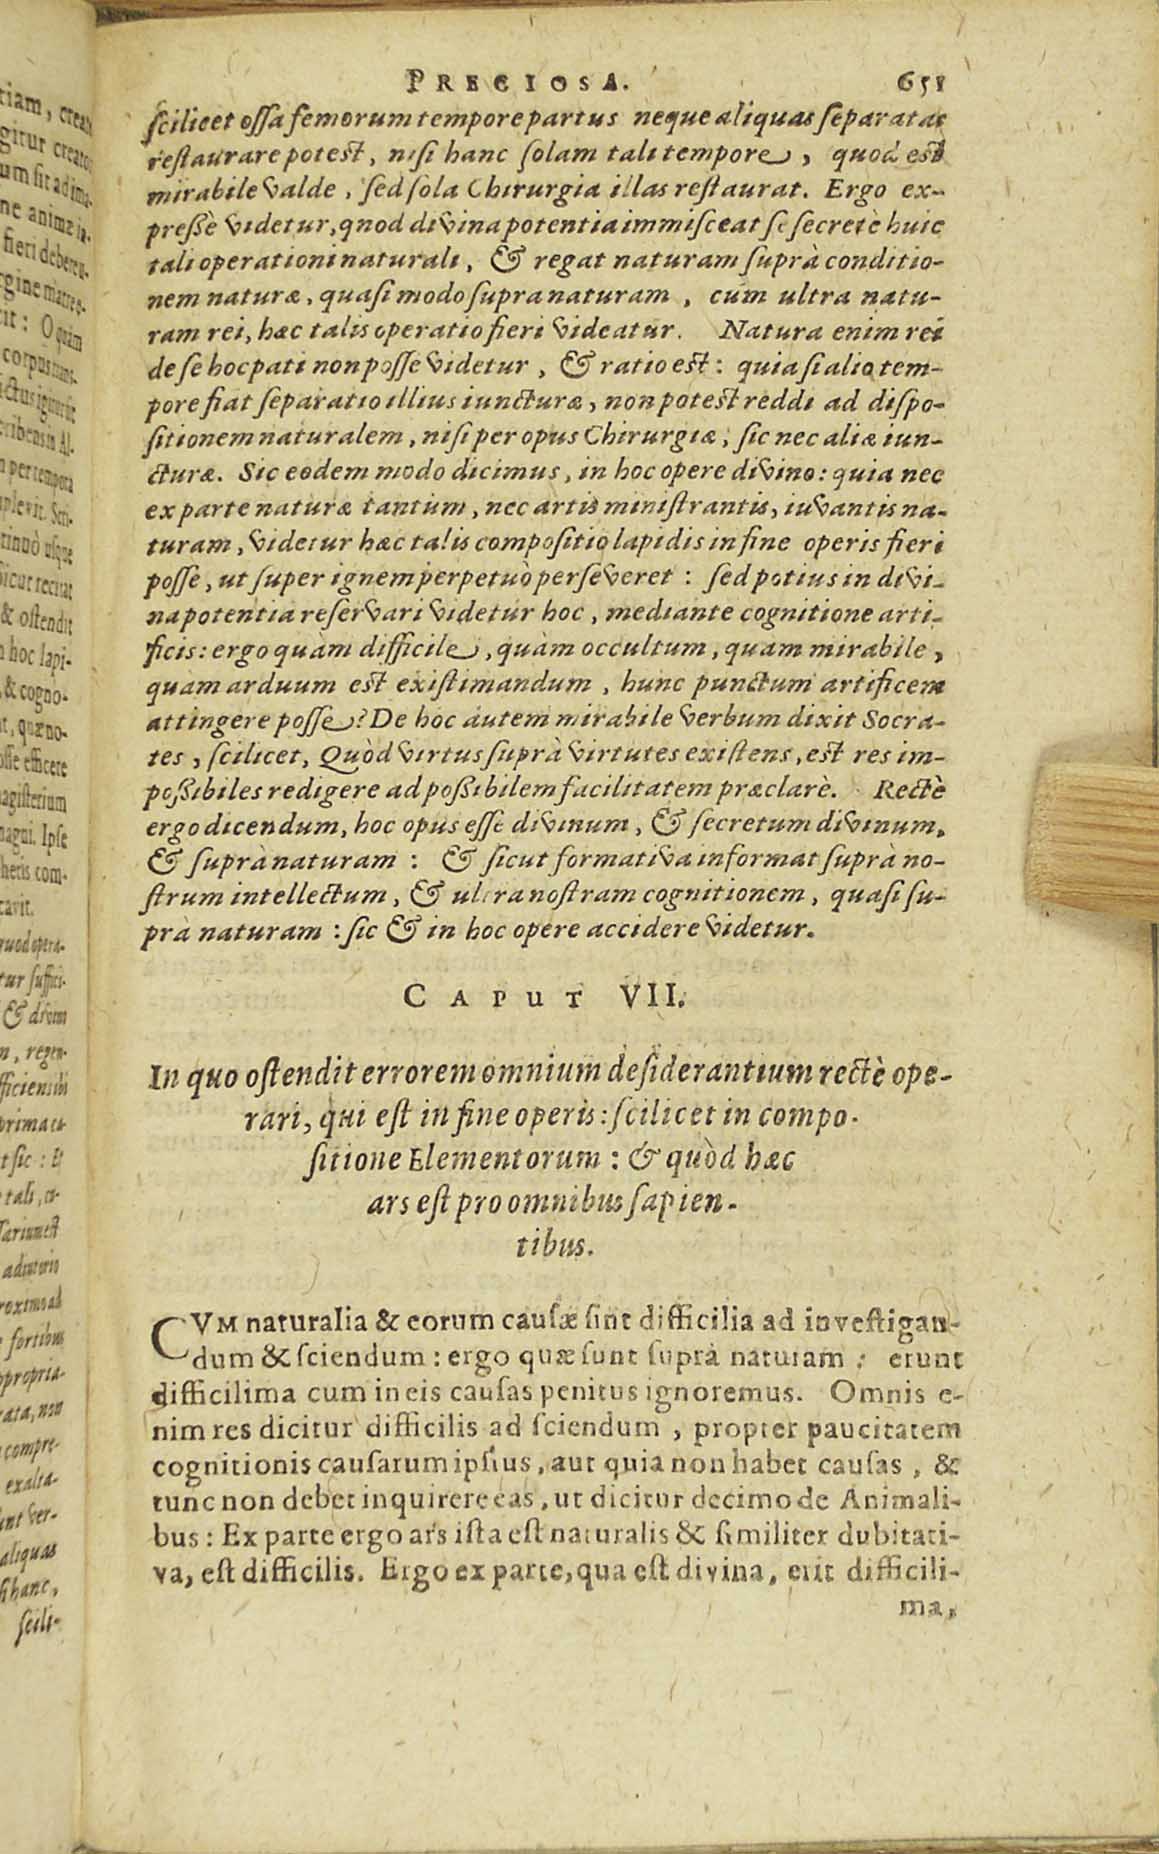 PRECIOSA. 651
scilicet ossa femorum tempore partus neque aliquas separatas
restaurare potest, nisi hanc solam tali tempore, quod est
mirabile valde, sed sola Chirurgia illas restaurat. Ergo ex-
pressè videtur, qnod divina potentia immisceat se secretè huic
tali operationi naturali, & regat naturam suprà conditio-
nem naturæ, quasi modo supra naturam, cùm ultra natu-
ram rei, hæc talis operatio fieri videatur. Natura enim rei
de se hoc pati non posse videtur, & ratio est: quia si alio tem-
pore fiat separatio illius iuncturæ, non potest reddi ad dispo-
sitionem naturalem, nisi per opus Chirurgiæ, sic nec aliæ iun-
cturæ. Sic eodem modo dicimus, in hoc opere divino: quia nec
ex parte naturæ tantum, nec artis ministrantis, iuvantis na-
turam, videtur hæc talis compositio lapidis in fine operis fieri
posse, ut super ignem perpetuò perseveret: sed potius in divi-
na potentia reservari videtur hoc, mediante cognitione arti-
ficis: ergo quàm difficile, quàm occultum, quam mirabile,
quam arduum est existimandum, hunc punctum artificem
attingere posse? De hoc autem mirabile verbum dixit Socra-
tes, scilicet, Quòd virtus suprà virtutes existens, est res im-
possibiles redigere ad possibilem facilitatem præclarè. Rectè
ergo dicendum, hoc opus esse divinum, & secretum divinum,
& suprà naturam: & sicut formativa informat suprà no-
strum intellectum, & ultra nostram cognitionem, quasi su-
prà naturam: sic & in hoc opere accidere videtur.
CAPUT VII.
In quo ostendit errorem omnium desiderantium rectè ope-
rari, qui est in fine operis: scilicet in compo-
sitione Elementorum: & quòd hæc
ars est pro omnibus sapien-
tibus.
CVM naturalia & eorum causæ sint difficilia ad investigan-
dum & sciendum: ergo quæ sunt suprà naturam: erunt
difficilima cum in eis causas penitus ignoremus. Omnis e-
nim res dicitur difficilis ad sciendum, propter paucitatem
cognitionis causarum ipsius, aut quia non habet causas, &
tunc non debet inquirere eas, ut dicitur decimo de Animali-
bus: Ex parte ergo ars ista est naturalis & similiter dubitati-
va, est difficilis. Ergo ex parte, qua est divina, erit difficili-
ma,